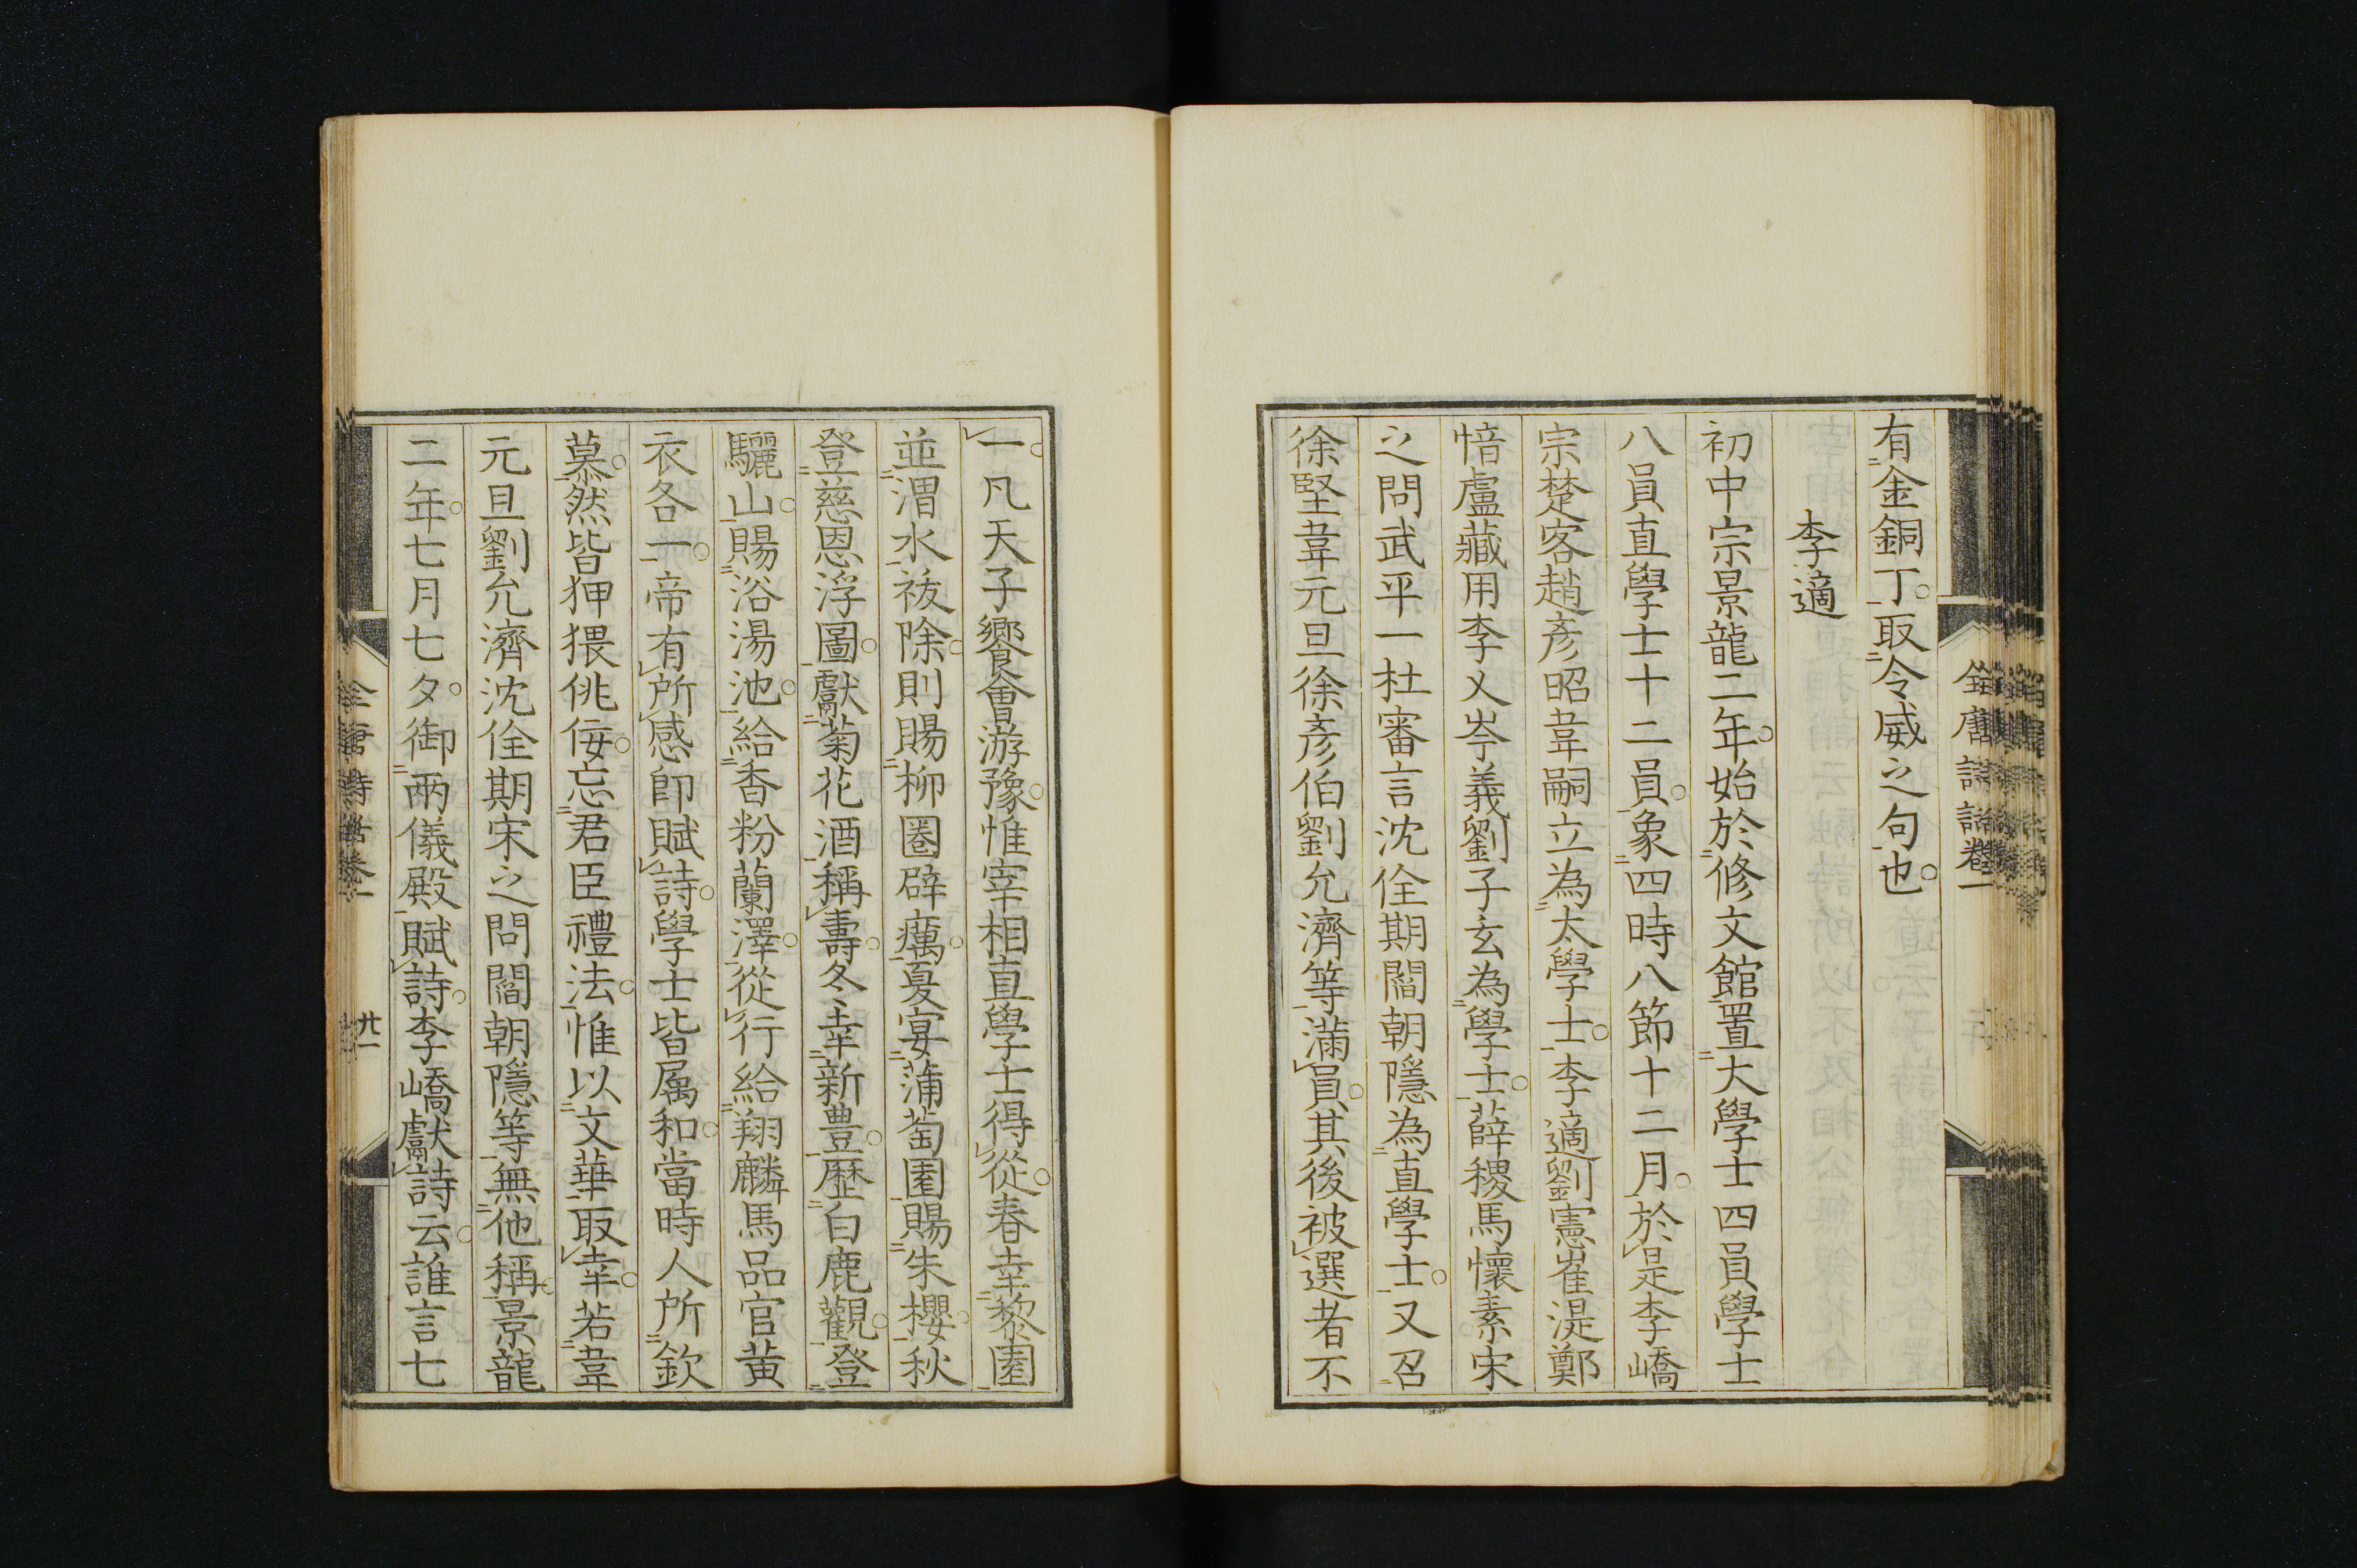 有金銅丁取令威之句也
李適
初中宗景龍二年始於修文館置大學士四員學士
八員直學士十二員象四時八節十二月於是李嶠
宗楚客趙彦昭韋嗣立為大學士李適劉憲崔湜鄭
愔盧藏用李乂岑義劉子玄為學士薛稷馬懷素宋
之問武平一杜審言沈佺期閻朝隱為直學士又召
徐堅韋元旦徐彦伯劉允濟等滿員其後被選者不
一凡天子饗會游豫惟宰相直學士得從春幸黎園
並渭水祓除則賜柳圈辟癘夏宴蒲萄園賜朱櫻秋
登慈恩浮圖獻菊花酒稱壽冬幸新豊歴白鹿觀登
驪山賜浴湯池給香粉蘭澤從行給翔麟馬品官黄
衣各一帝有所感即賦詩學士皆属和當時人所欽
慕然皆狎猥佻佞忘君臣禮法惟以文華取幸若韋
元旦劉允濟沈佺期宋之問閻朝隱等無他稱景龍
二年七月七夕御兩儀殿賦詩李嶠獻詩云誰言七
全唐詩話卷一
廿一